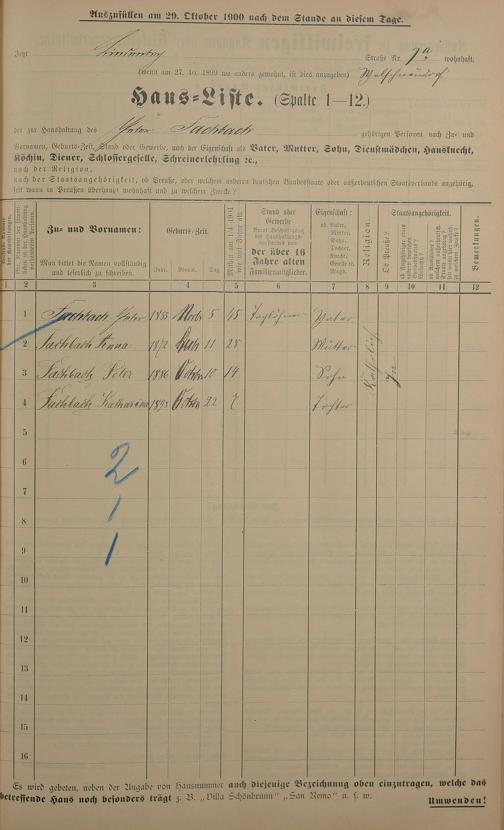 Auszufüllen am 29. Oktober 1900 nach dem Stande an diesem Tage.
Jetzt Straße Nr. 7a wohnhaft.
(Wenn am 27. 10. 1899 wo anders gewohnt, ist dies anzugeben)
Haus-Liste. (Spalte 1—12.)
der zur Haushaltung des Peter Fachbach gehörigen Personen nach Zu- und
Vornamen, Geburts-Zeit, Stand oder Gewerbe, nach der Eigenschaft als Vater, Mutter, Sohn, Dienstmädchen, Hausknecht,
Köchin, Diener, Schlossergeselle, Schreinerlehrling ec.,
nach der Religion,
nach der Staatsangehörigkeit, ob Preuße, oder welchem anderen deutschen Bundesstaate oder außerdeutschen Staatsverbande angehörig,
seit wann in Preußen überhaupt wohnhaft und zu welchem Zwecke?
Zu- und Vornamen:
Man bittet die Namen vollständig
und leserlich zu schreiben.
Geburts-Zeit.
Jahr. Monat. Tag
Mithin am 1/4 1901
wie viel Jahre alt
Stand oder
Gewerbe
der über 16
Jahre alten
Familienmitglieder.
Eigenschaft:
ob Vater,
Mutter,
Sohn,
Tochter,
Knecht,
Geselle ec.
Magd.
Religion.
Staatsangehörigkeit.
Ob Preuße?
Bemerkungen.
1 2 3 4 5 6 7 8 9 10 11 12
1 Fachbach Peter 1855 5 45 Taglöhner Vater
2 Fachbach Anna 1872 11 28 Mutter
3 Fachbach Peter 1886 10 14 Sohn
4 Fachbach Katharina 1893 22 7 Tochter
Katholisch
Ja
5
6
7
8
9
10
11
12
13
14
15
16
2
1
1
Es wird gebeten, neben der Angabe von Hausnummer auch diejenige Bezeichnung oben einzutragen, welche das
betreffende Haus noch besonders trägt z. B. „Villa Schönbrunn" „San Remo" u. s. w.
Umwenden!